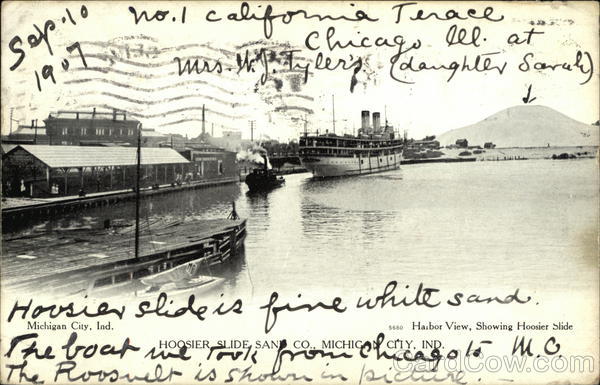 Sep. 10
1907
No. 1 California Terace
Chicago Ill. at
Mrs. W.J. Tyler's (daughter Sarah)
Hoosier Slide is fine white sand.
Michigan City, Ind.
5680 Harbor View, Showing Hoosier Slide
HOOSIER SLIDE SAND CO., MICHIGAN CITY, IND.
The boat we took from Chicago to M.C.
The Roosvelt is shown in picture
CardCow.com